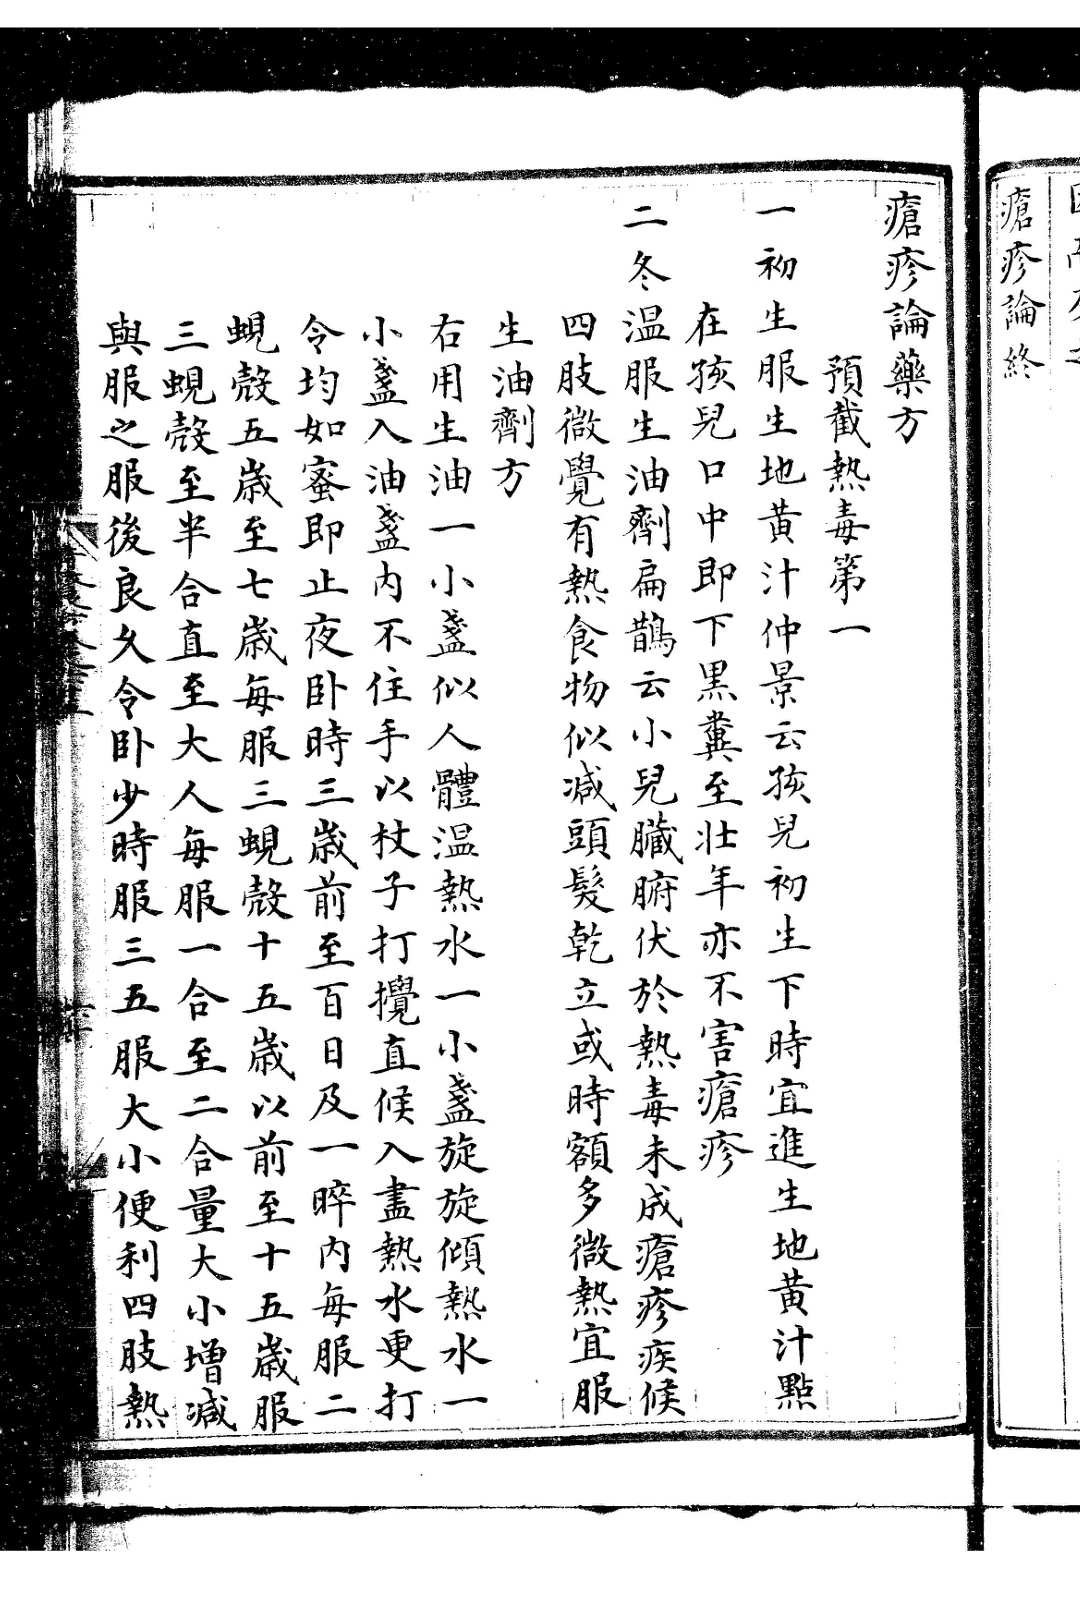 瘡疹論終
瘡疹論藥方
預截熱毒第一
一初生服生地黄汁仲景云孩兒初生下時宜進生地黄汁點
在孩兒口中即下黒糞至壮年亦不害瘡疹
二冬温服生油劑扁鵲云小兒臓腑伏於熱毒未成瘡疹疾候
四肢微覺有熱食物似减頭髮乾立或時額多微熱宜服
生油劑方
右用生油一小盞似人體温熱水一小盞旋旋傾熱水一
小盞入油盞内不住手以杖子打攪直候入盡熱水更打
令均如蜜即止夜卧時三歳前至百日及一晬内每服二
蜆殻五歳至七歳每服三蜆殻十五歳以前至十五歳服
三蜆殻至半合直至大人每服一合至二合量大小増减
與服之服後良久令卧少時服三五服大小便利四肢熱